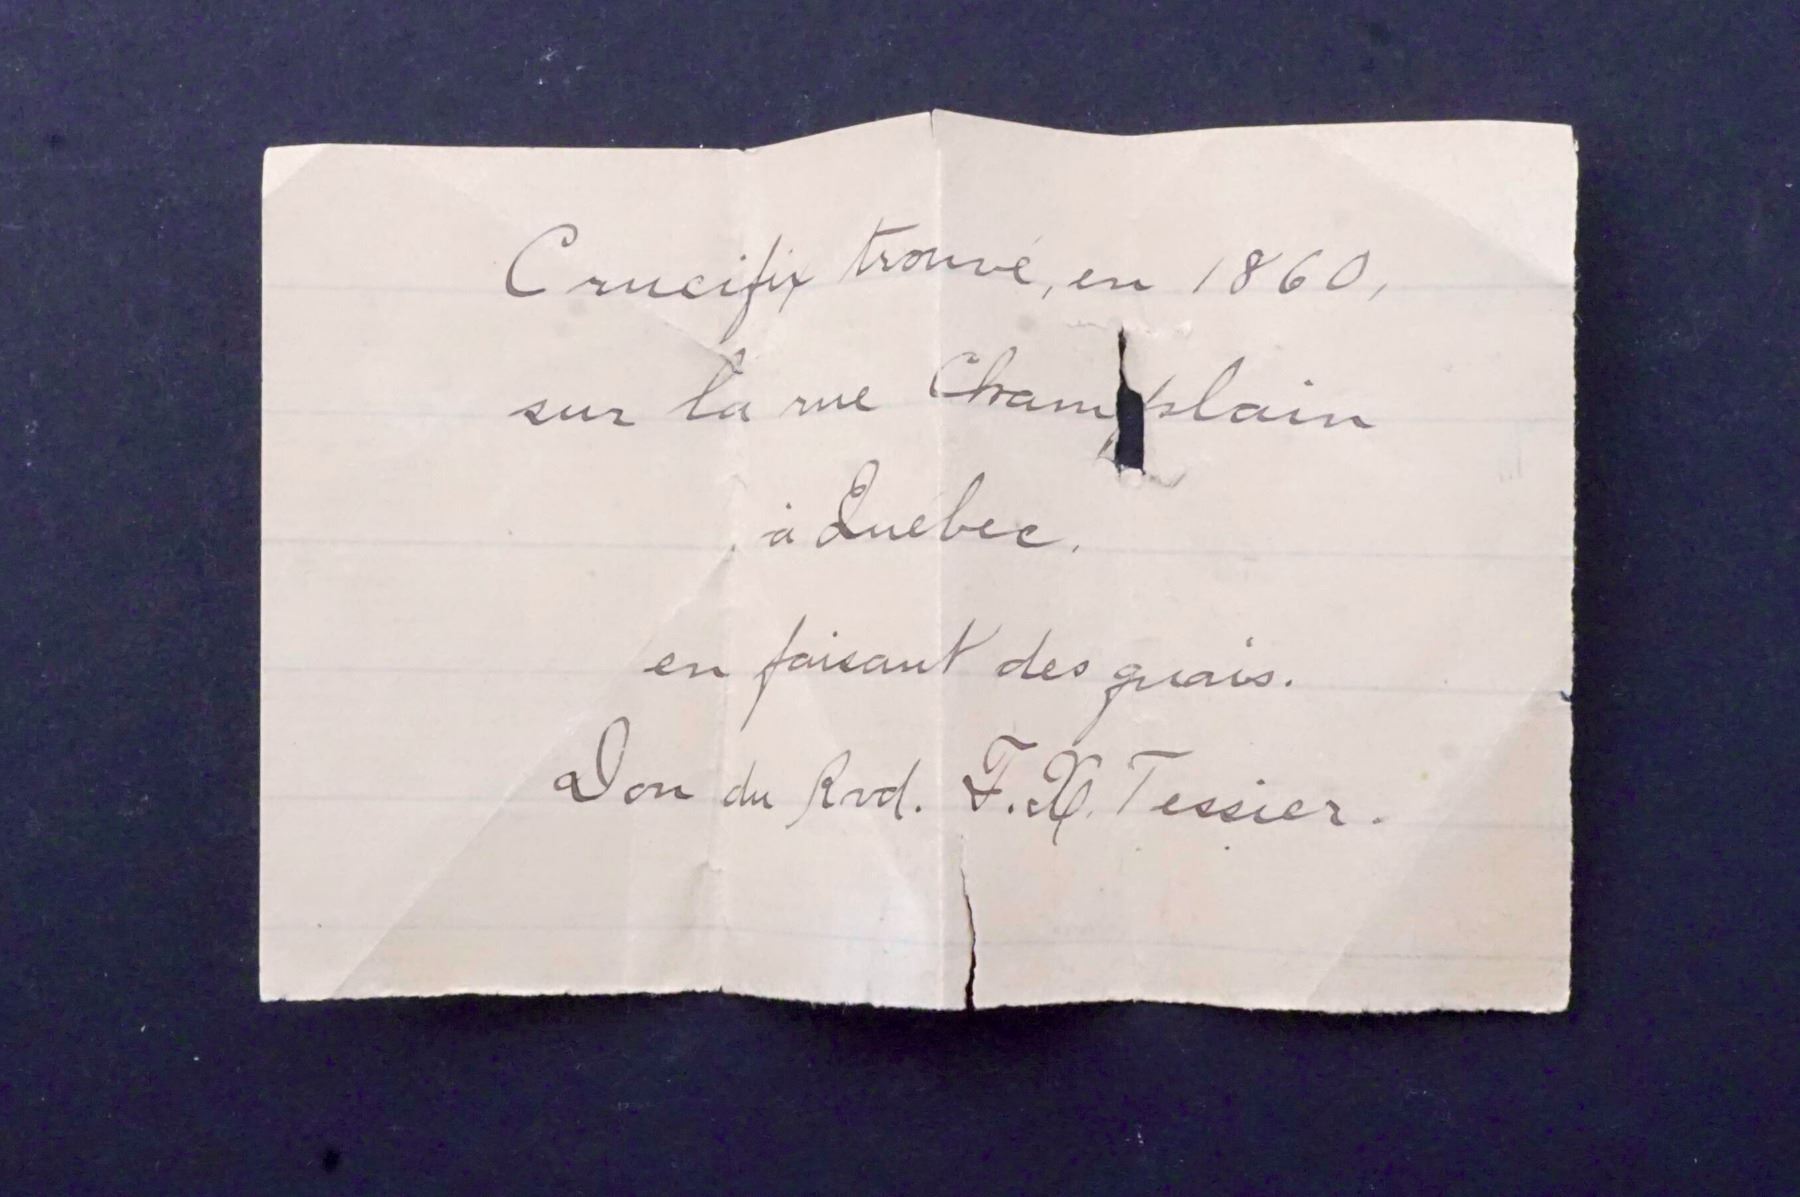 Crucifix trouvé, en 1860,
sur la rue Champlain
à Québec.
en faisant des quais.
Don du Rvd. F.X. Tessier.